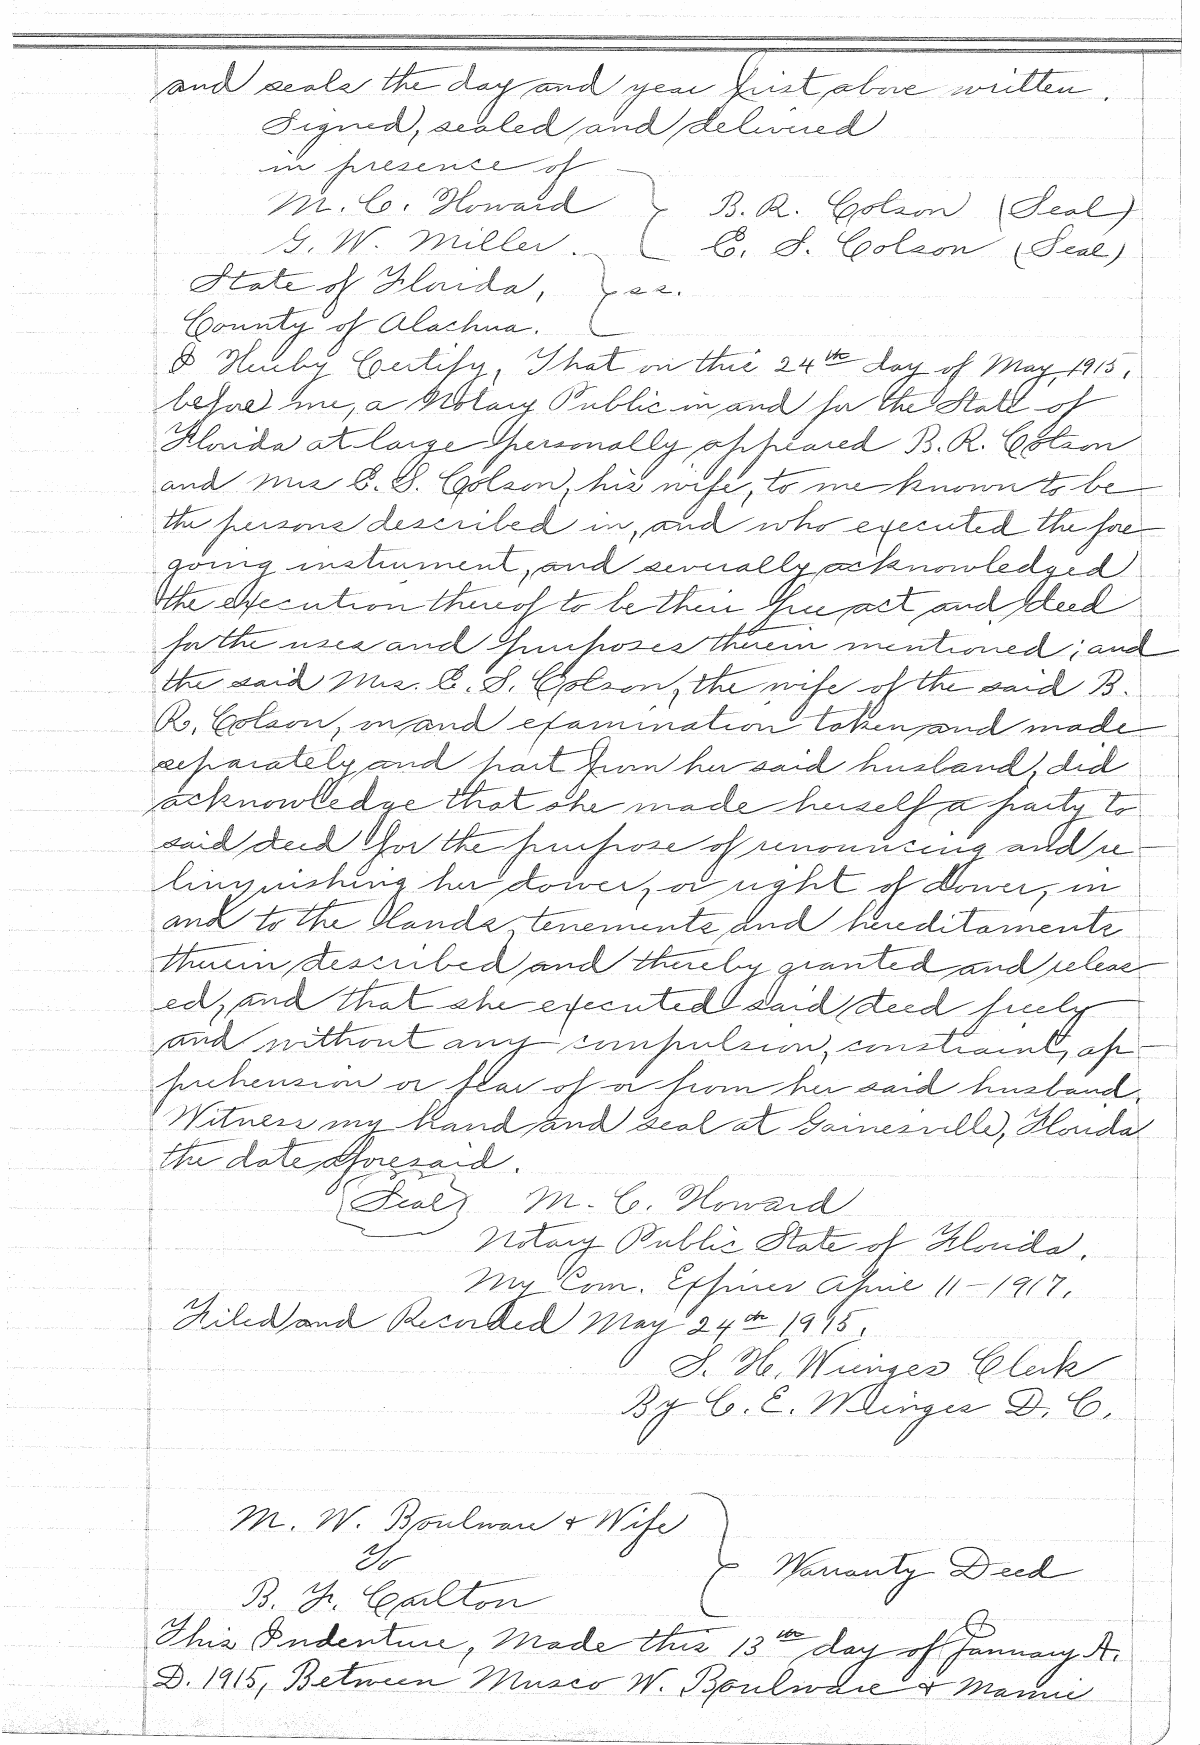 and seals the day and year first above written.
Signed, sealed and delivered
in presence of
M. C. Howard } B. R. Colson (Seal)
G. W. Miller. E. S. Colson (Seal)
State of Florida, } ss.
County of Alachua.
I Hereby Certify, That on this 24th day of May, 1915,
before me, a Notary Public in and for the State of
Florida at large personally appeared B. R. Colson
and Mrs E. S. Colson, his wife, to me known to be
the persons described in, and who executed the fore
going instrument, and severally acknowledged
the execution thereof to be their free act and deed
for the uses and purposes therein mentioned; and
the said Mrs. E. S. Colson, the wife of the said B.
R. Colson, on and examination taken and made
separately and part from her said husband, did
acknowledge that she made herself a party to
said deed for the purpose of renouncing and re-
linquishing her dower, or right of dower, in
and to the lands, tenements and hereditaments
therein described and thereby granted and releas
ed, and that she executed said deed freely
and without any compulsion, constraint, ap-
prehension or fear of or from her said husband.
Witness my hand and seal at Gainesville, Florida
the date aforesaid.
(Seal) M. C. Howard
Notary Public State of Florida.
My Com. Expires April 11-1917.
Filed and Recorded May 24th 1915.
S. H. Wienges Clerk
By C. E. Wienges D. C.
M. W. Boulware & Wife
To } Warranty Deed
B. F. Carlton
This Indenture, Made this 13th day of January A.
D. 1915, Between Musco W. Boulware & Mamie